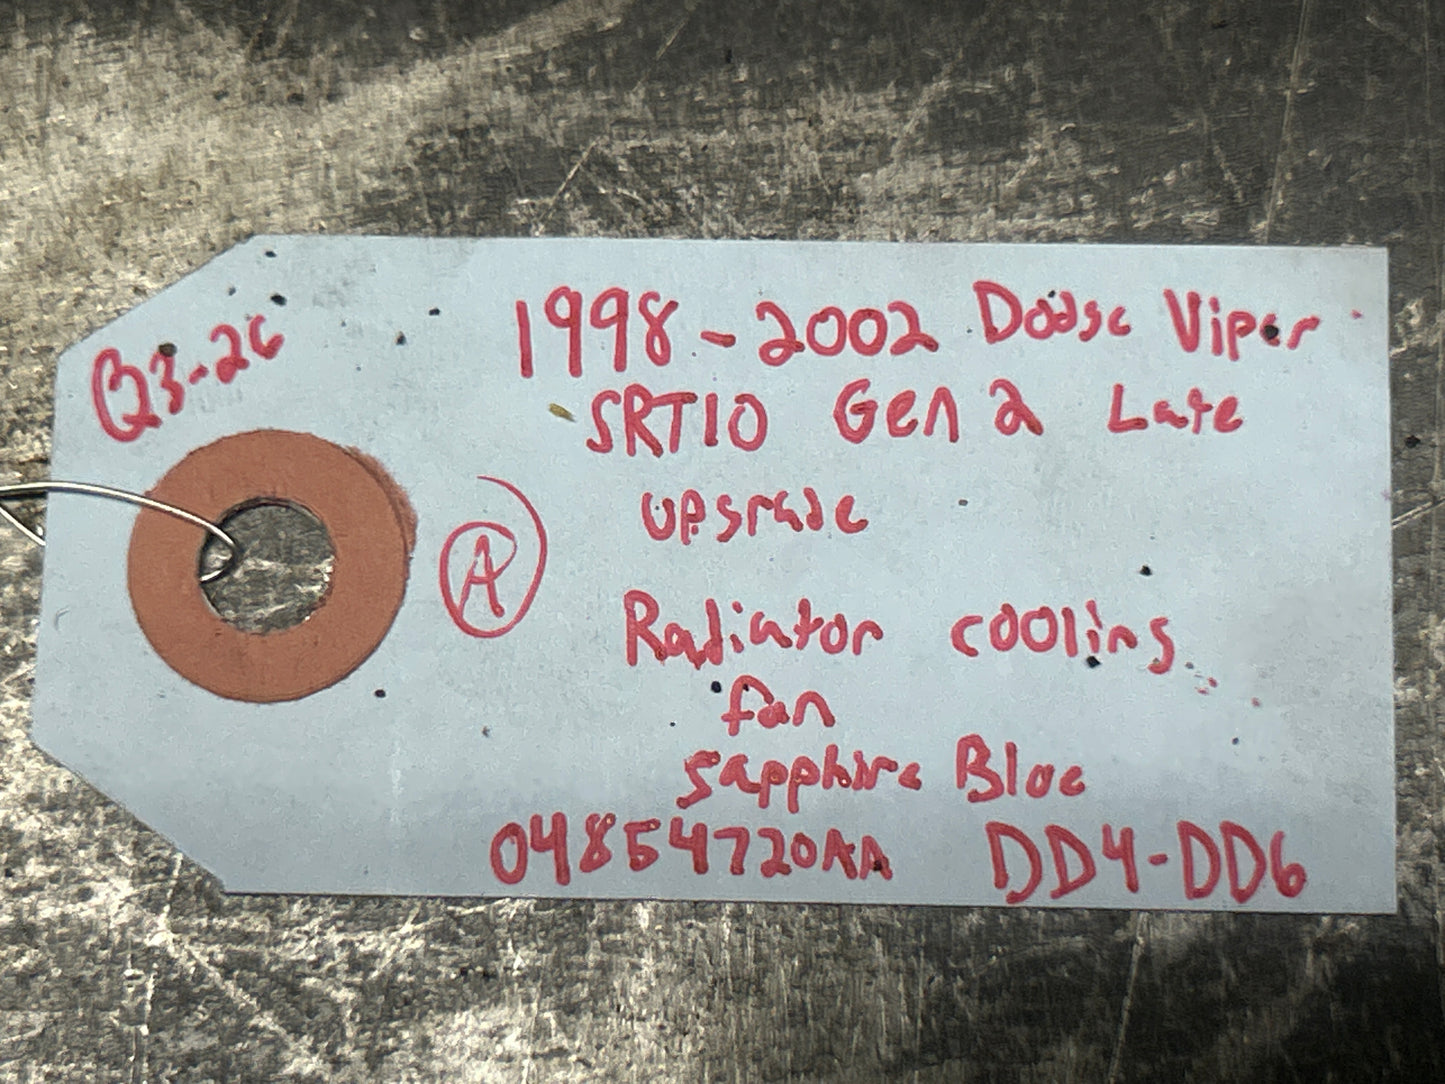 Q3-26
1998-2002 Dodge Viper
SRT10 Gen 2 Late
upgrade
A
Radiator cooling
fan
Sapphire Blue
04854720AA DD4-DD6